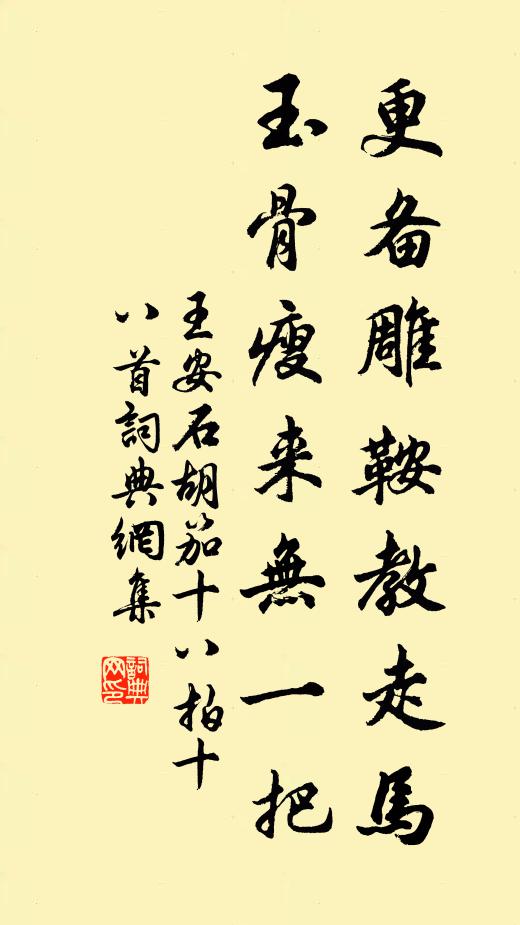 更备雕鞍教走馬
玉骨瘦来無一把
王安石胡笳十八拍十
八首詞典網集
詞典网印